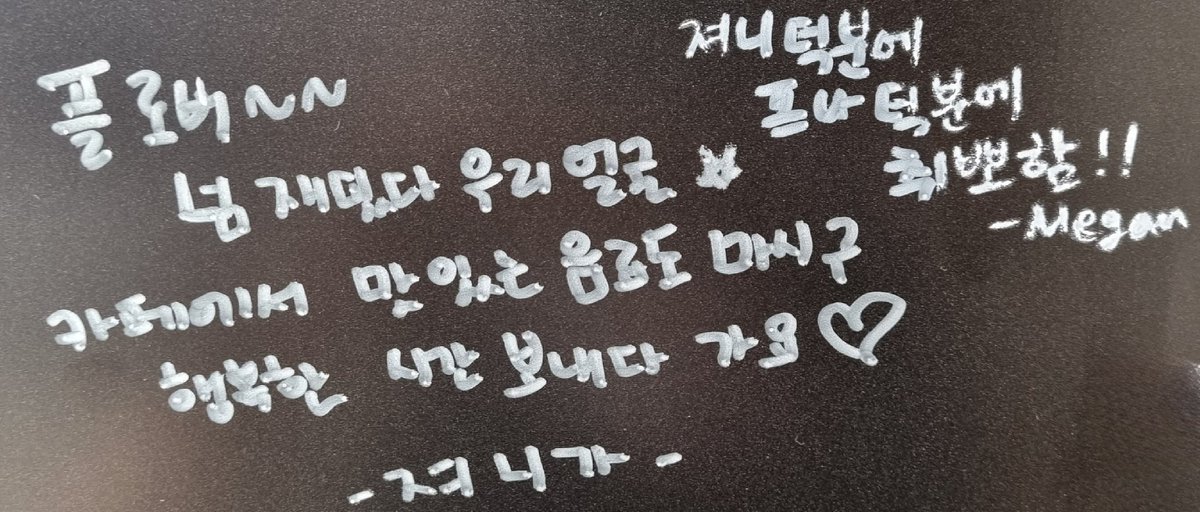 플로버~~
넘 재밌다 우리 얼굴 ☆
카페에서 맛있는 음료도 마시구
행복한 시간 보내다 가요 ♡
-져니가-
져니턱분에
프나턱분에
취뽀함!!
-Megan